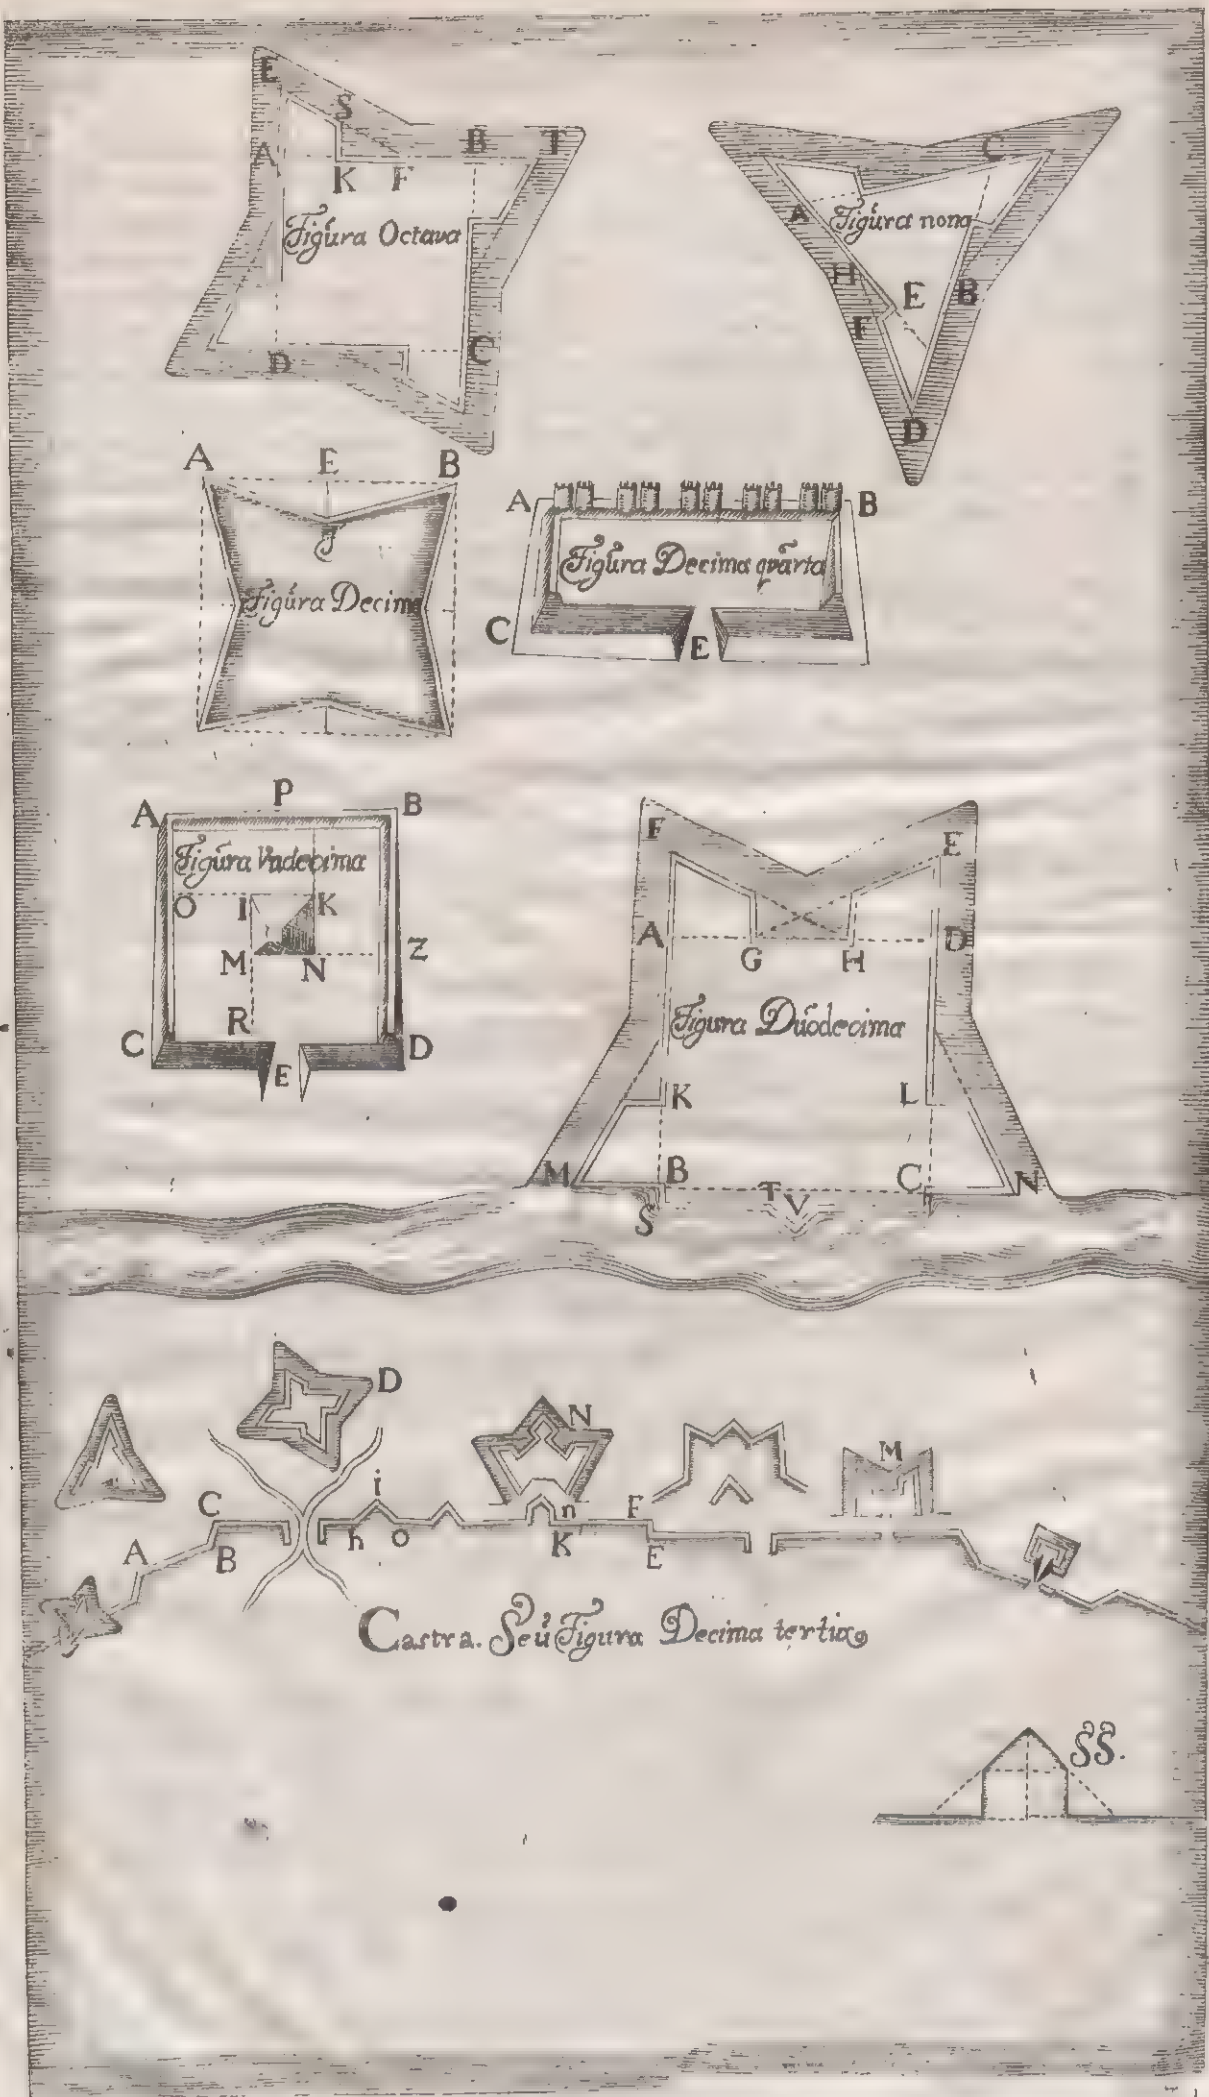 E
S
A
B
T
K
F
Figura Octava
D
C
C
A
Figura nona
H
E
B
F
D
A
E
B
J
Figura Decima
A
B
Figura Decima qvarta
C
E
P
A
B
Figura Vndecima
O
I
K
M
N
Z
R
C
D
E
F
E
A
D
G
H
Figura Duodecima
K
L
M
B
T
V
C
N
S
D
N
M
i
C
n
F
h
o
A
B
K
E
Castra. Seu Figura Decima tertia
SS.